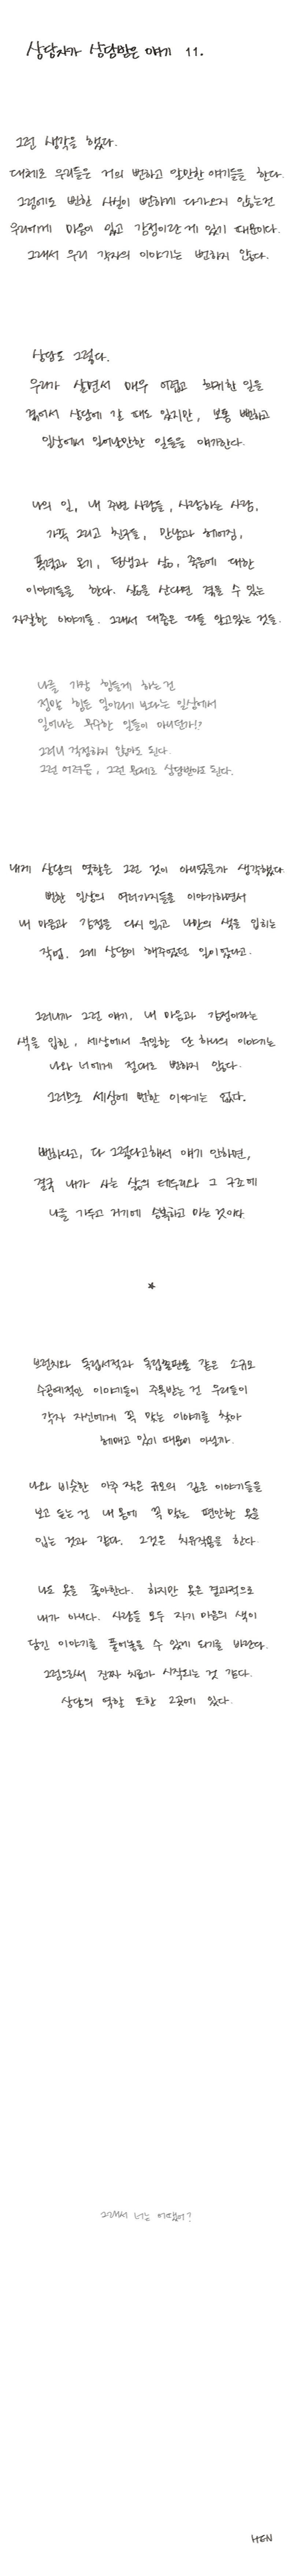 상담자가 상담받은 이야기 11.
그런 생각을 했다.
대체로 우리들은 거의 뻔하고 알만한 얘기들을 한다.
그럼에도 뻔한 사실이 뻔하게 다가오지 않는건
우리에게 마음이 있고 감정이란 게 있기 때문이다.
그래서 우리 각자의 이야기는 뻔하지 않다.
상담도 그렇다.
우리가 살면서 매우 어렵고 희귀한 일을
겪어서 상담에 갈 때도 있지만, 보통 뻔하고
일상에서 일어날만한 일들을 얘기한다.
나의 일, 내 주변 사람들, 사랑하는 사람,
가족 그리고 친구들, 만남과 헤어짐,
폭력과 온기, 탄생과 삶, 죽음에 대한
이야기들을 한다. 삶을 산다면 겪을 수 있는
자잘한 이야기들. 그래서 대충은 다들 알고있는 것들.
나를 가장 힘들게 하는건
정말 힘든 일이라기 보다는 일상에서
일어나는 무수한 일들이 아니던가!?
그러니 걱정하지 않아도 된다.
그런 어려움, 그런 문제로 상담받아도 된다.
내게 상담의 역할은 그런 것이 아니었을까 생각했다.
뻔한 일상의 여러가지들을 이야기하면서
내 마음과 감정을 다시 읽고 나만의 색을 입히는
작업. 그게 상담이 해주었던 일이었다고.
그러니까 그런 얘기. 내 마음과 감정이라는
색을 입힌, 세상에서 유일한 단 하나의 이야기는
나와 너에게 절대로 뻔하지 않다.
그러므로 세상에 뻔한 이야기는 없다.
뻔하다고, 다 그렇다고해서 얘기 안하면,
결국 내가 사는 삶의 테두리와 그 구조에
나를 가두고 거기에 승복하고 마는 것이다.
*
브런치와 독립서적과 독립출판물 같은 소규모
수공예적인 이야기들이 주목받는 건 우리들이
각자 자신에게 꼭 맞는 이야기를 찾아
헤매고 있기 때문이 아닐까.
나와 비슷한 아주 작은 규모의 깊은 이야기들을
보고 듣는 건 내 몸에 꼭 맞는 편안한 옷을
입는 것과 같다. 그것은 치유작용을 한다.
나도 옷을 좋아한다. 하지만 옷은 결과적으로
내가 아니다. 사람들 모두 자기 마음의 색이
담긴 이야기를 풀어놓을 수 있게 되기를 바란다.
그럼으로써 진짜 치료가 시작되는 것 같다.
상담의 역할 또한 그곳에 있다.
그래서 너는 어땠어?
HEN